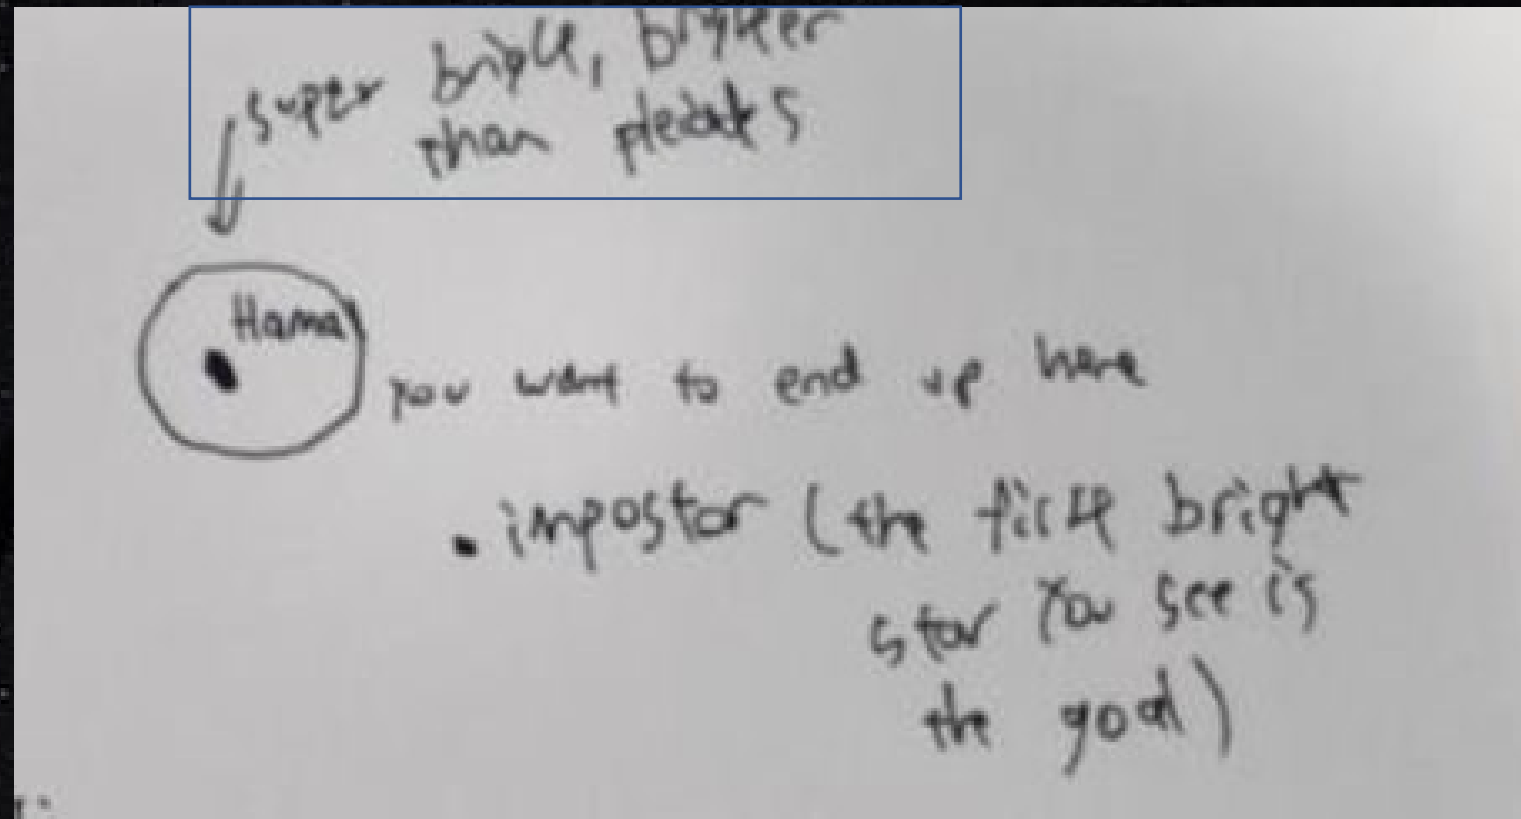 super bright, brighter
than pleiades
Hamal
you want to end up here
• impostor (the first bright
star you see is
the goal)